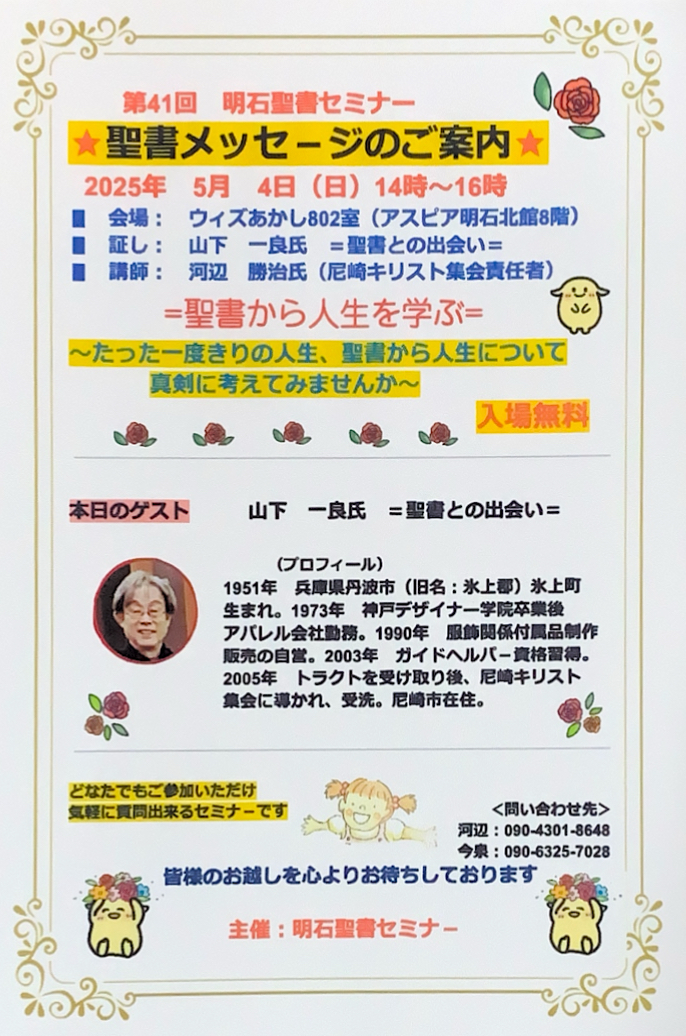 第41回　明石聖書セミナー
★聖書メッセージのご案内★
2025年　5月　4日（日）14時～16時
会場：　ウィズあかし802室（アスピア明石北館8階）
証し：　山下　一良氏　＝聖書との出会い＝
講師：　河辺　勝治氏（尼崎キリスト集会責任者）
=聖書から人生を学ぶ=
～たった一度きりの人生、聖書から人生について
真剣に考えてみませんか～
入場無料
本日のゲスト　　山下　一良氏　＝聖書との出会い＝
（プロフィール）
1951年　兵庫県丹波市（旧名：氷上郡）氷上町
生まれ。1973年　神戸デザイナー学院卒業後
アパレル会社勤務。1990年　服飾関係付属品制作
販売の自営。2003年　ガイドヘルパー資格習得。
2005年　トラクトを受け取り後、尼崎キリスト
集会に導かれ、受洗。尼崎市在住。
どなたでもご参加いただけ
気軽に質問出来るセミナーです
＜問い合わせ先＞
河辺：090-4301-8648
今泉：090-6325-7028
皆様のお越しを心よりお待ちしております
主催：明石聖書セミナー